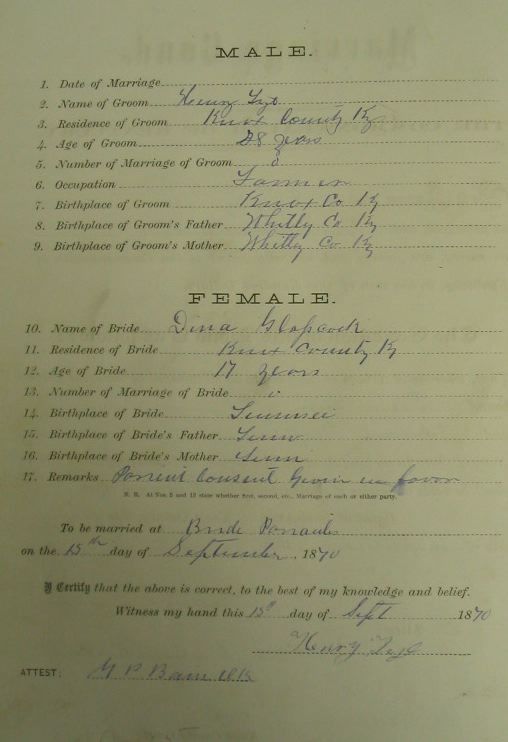 MALE.
1. Date of Marriage
2. Name of Groom Henry
3. Residence of Groom Knox County Ky
4. Age of Groom 28 years
5. Number of Marriage of Groom 0
6. Occupation Farmer
7. Birthplace of Groom Knox Co Ky
8. Birthplace of Groom's Father Whitly Co Ky
9. Birthplace of Groom's Mother Whitly Co Ky
FEMALE.
10. Name of Bride Dina Glopcock
11. Residence of Bride Knox County K
12. Age of Bride 17 years
13. Number of Marriage of Bride 0
14. Birthplace of Bride
15. Birthplace of Bride's Father Tenn
16. Birthplace of Bride's Mother Tenn
17. Remarks Consent Given in favor
N. B. At Nos 5 and 13 state whether first, second, etc., Marriage of each or either party.
To be married at Bride
on the 15th day of September, 1870
I Certify that the above is correct, to the best of my knowledge and belief.
Witness my hand this 15th day of Sept 1870
Henry
ATTEST: